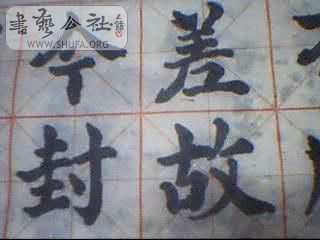 書藝公社
WWW.SHUFA.ORG
今差
封故